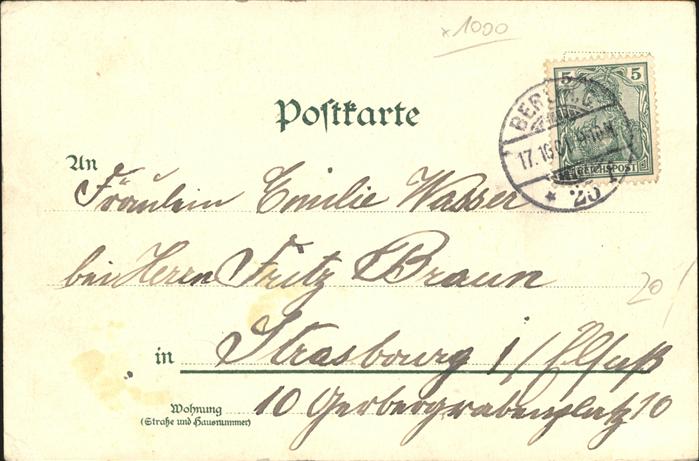 x1000
5 5
REICHSPOST
BERLIN, C.
17.10.01. 9-10N.
* 25
Postkarte
An
Fräulein Emilie Wasser
bei Herrn Fritz Braun
20
in Strasbourg i/Elsaß
Wohnung
(Straße und Hausnummer)
10 Gerbergrabenplatz 10